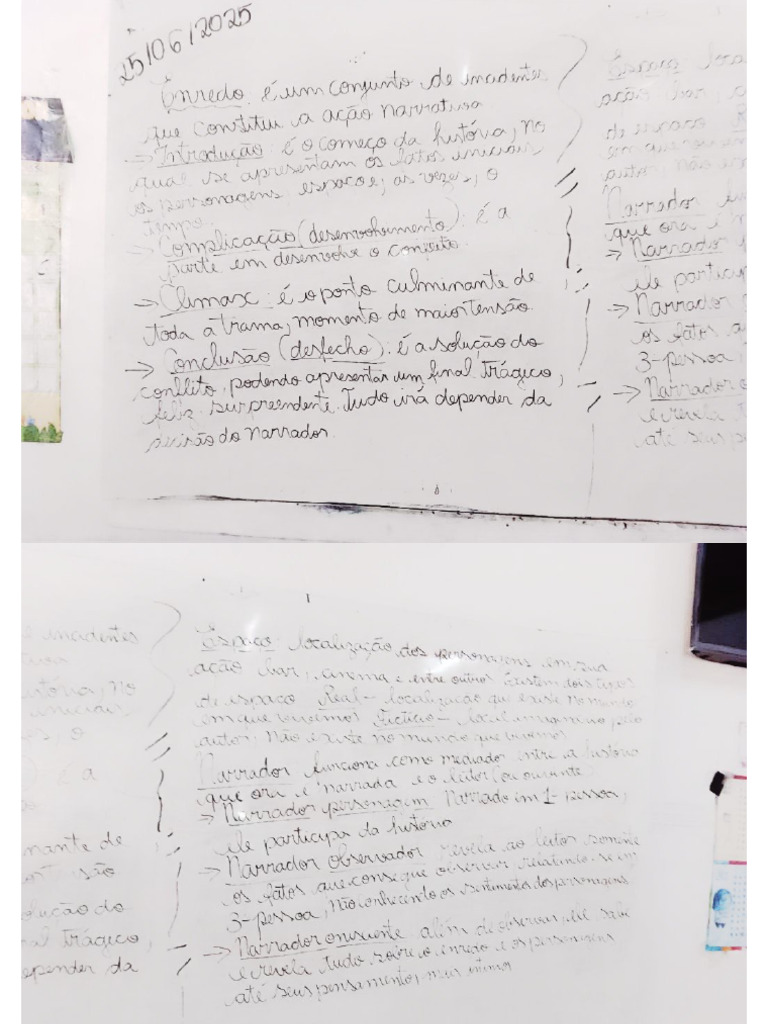 25/06/2025
Enredo: é um conjunto de incidentes
que constitui a ação narrativa
→ Introdução: é o começo da história, no
qual se apresentam os fatos iniciais
os personagens, espaço e, as vezes, o
tempo.
→ Complicação (desenvolvimento): é a
parte em desenvolve o conflito.
→ Climax: é o ponto culminante de
toda a trama, momento de maior tensão
→ Conclusão (desfecho): é a solução do
conflito, podendo apresentar um final trágico,
feliz surpreendente. Tudo irá depender da
decisão do narrador.
Espaço: localização dos personagens em sua
ação bar, cinema e entre outros Existem dois tipos
de espaço Real - localização que existe no mundo
em que vivemos Fictício - local imaginário pelo
autor, não existe no mundo que vivemos
Narrador funciona como mediador entre a história
que ora é narrada e o leitor (ou ouvinte)
→ Narrador personagem Narrado em 1- pessoa,
ele participa da história
→ Narrador observador revela ao leitor somente
os fatos que consegue observar, relatando-se em
3-pessoa, não conhecendo os sentimentos dos personagens
→ Narrador onisciente além de observar, ele sabe
e revela tudo sobre o enredo e os personagens
até seus pensamentos mais íntimos